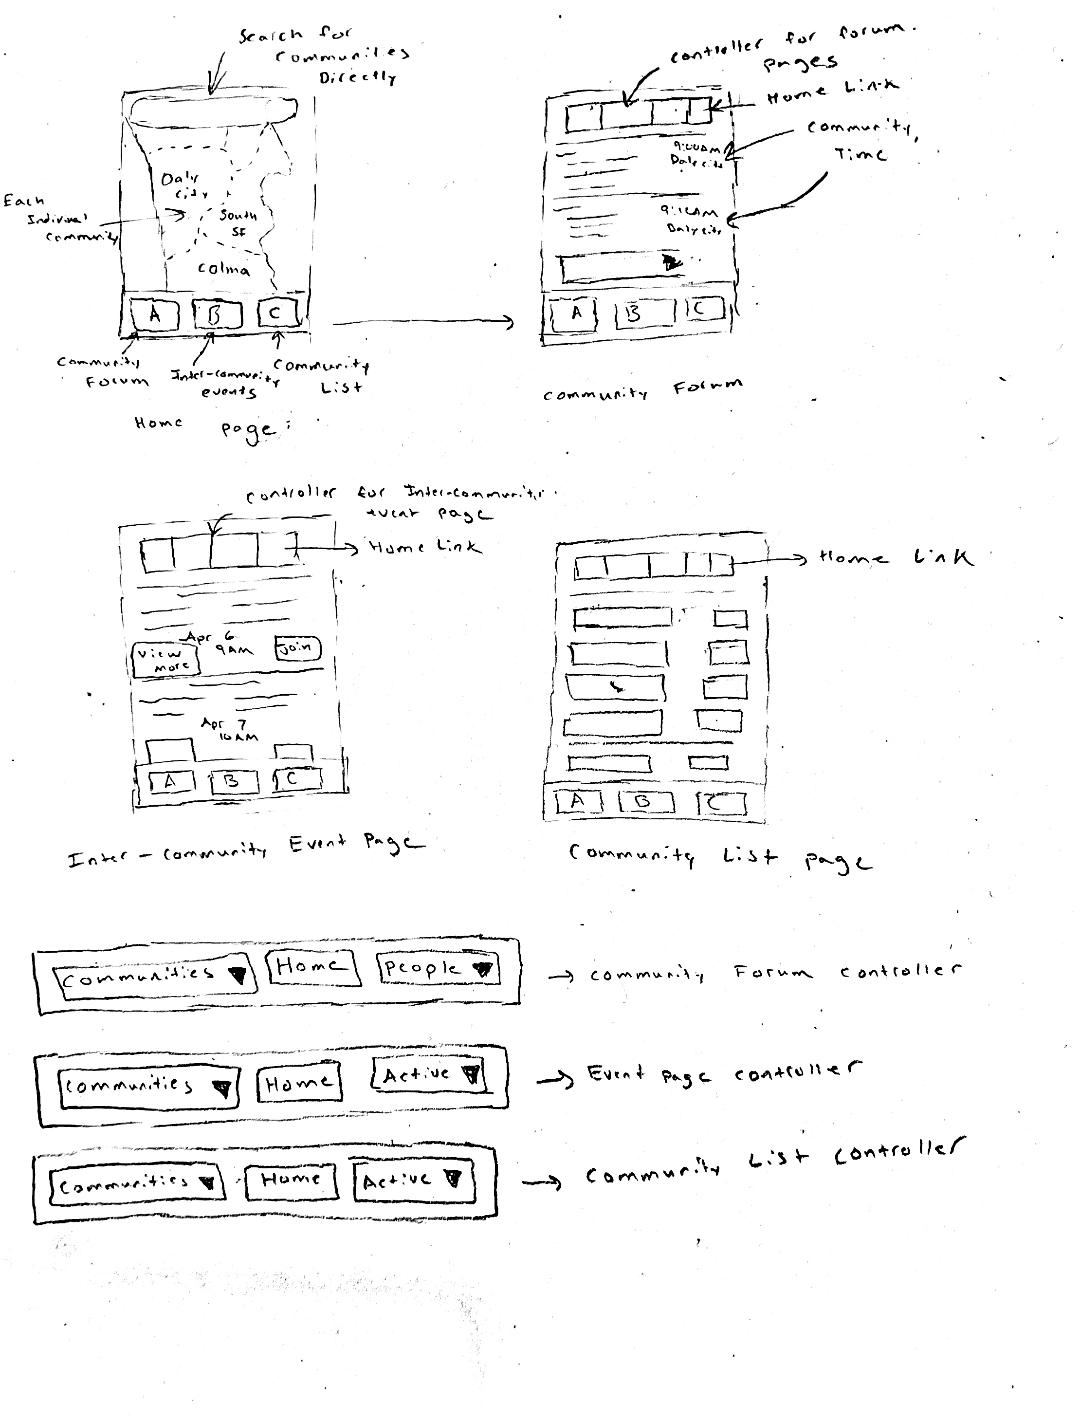 Search for
Communities
Directly
Daly
City
South
SF
Colma
Each
Indivual
Community
A
B
C
Community
Forum
Inter-community
events
Community
List
Home page:
controller for forum
pages
Home Link
Community,
Time
9:00AM
Daly city
9:12AM
Daly city
A
B
C
Community Forum
controller for Inter-community
event page
Home Link
Apr 6
9AM
View
more
Join
Apr 7
10AM
A
B
C
Inter-community Event Page
Home Link
A
B
C
Community List page
Communities
Home
People
Community Forum Controller
Communities
Home
Active
Event page controller
Communities
Home
Active
Community List Controller